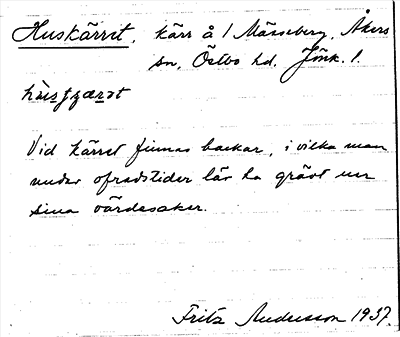 Huskärret, kärr å 1 Mässeberg, Åkers
sn, Östbo hd. Jönk. l.
Vid kärret finnas backar, i vilka man
under ofredstider lär ha grävt ner
sina värdesaker.
Fritz Andersson 1937.